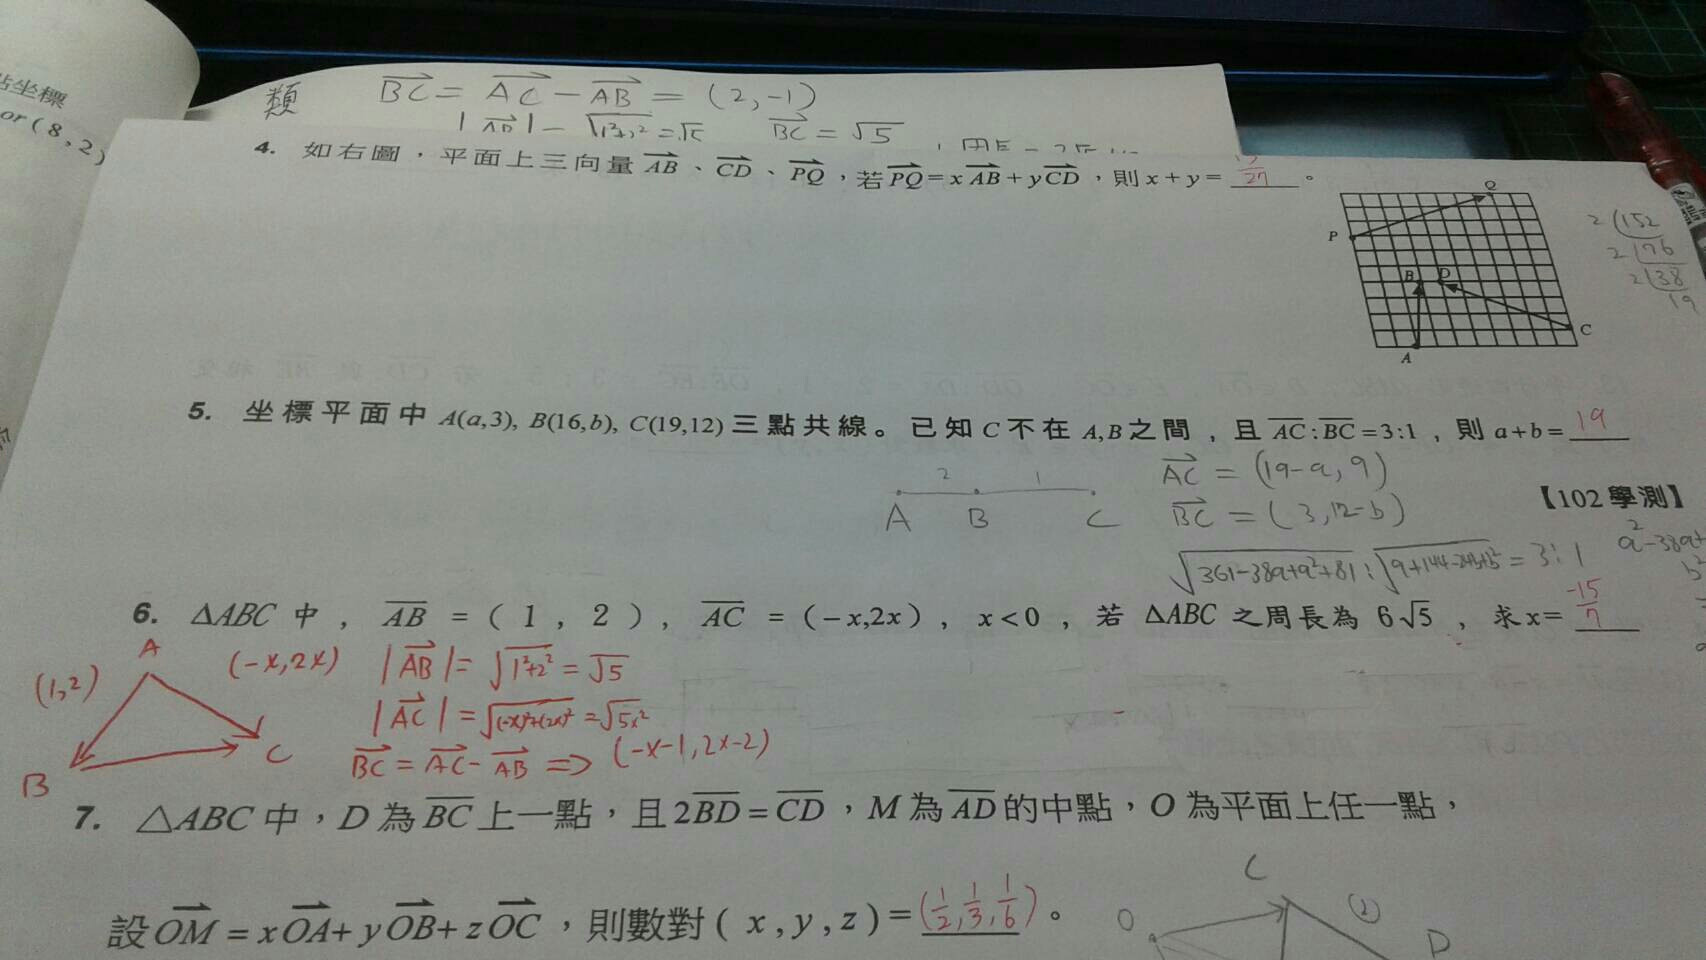 點坐標
or (8,2)
類 BC = AC - AB = (2,-1)
√1²+2² = √5 BC = √5
4. 如右圖，平面上三向量 AB、CD、PQ，若 PQ = x AB + y CD，則 x + y = ____。
27
Q
P
B D
C
A
2 152
2 76
2 38
19
5. 坐標平面中 A(a,3), B(16,b), C(19,12) 三點共線。已知 C 不在 A,B 之間，且 AC:BC=3:1，則 a+b= 19
2 1
A B C
AC = (19-a, 9)
BC = (3,12-b)
【102 學測】
√361-38a+a²+81 : √9+144-24b+b² = 3:1
6. ΔABC 中，AB = (1, 2), AC = (-x,2x), x<0，若 ΔABC 之周長為 6√5，求 x= -15/7
A
(1,2) (-x,2x)
B C
|AB| = √1²+2² = √5
|AC| = √(-x)²+(2x)² = √5x²
BC = AC - AB ⇒ (-x-1, 2x-2)
7. △ABC 中，D 為 BC 上一點，且 2BD = CD，M 為 AD 的中點，O 為平面上任一點，
設 OM = x OA + y OB + z OC，則數對 ( x , y , z ) = (1/2, 1/3, 1/6)。
C
O
②
D